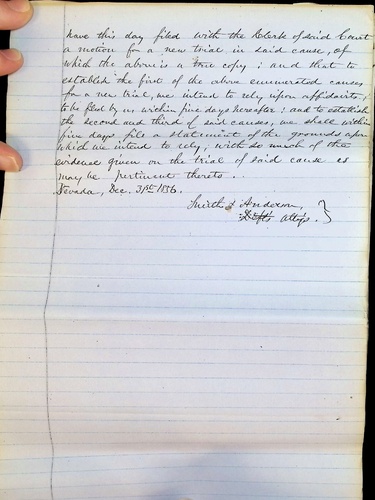 have this day filed with the Clerk of said Court
a motion for a new trial in said cause, of
which the above is a true copy; and that to
establish the first of the above enumerated causes
for a new trial, we intend to rely upon affidavits,
to be filed by us, within five days hereafter; and to establish
the second and third of said causes, we shall within
five days file a statement of the grounds upon
which we intend to rely, with so much of the
evidence given on the trial of said cause as
may be pertinent thereto..
Nevada, Dec. 31st 1856.
Smith & Anderson,
Defts Attys.